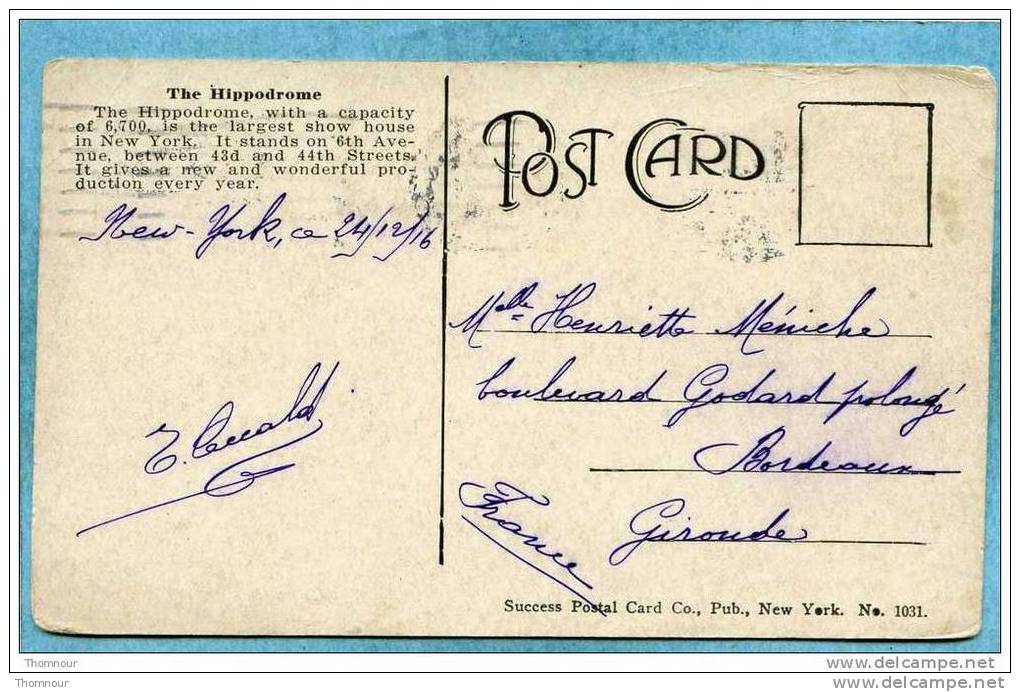 The Hippodrome
The Hippodrome, with a capacity
of 6,700, is the largest show house
in New York. It stands on 6th Ave-
nue, between 43d and 44th Streets.
It gives a new and wonderful pro-
duction every year.
New-York, ce 24/12/16
POST CARD
Melle Henriette Méniche
boulevard Godard polongé
Bordeaux
Gironde
France
Success Postal Card Co., Pub., New York. No. 1031.
Thomnour
Thomnour
www.delcampe.net
www.delcampe.net